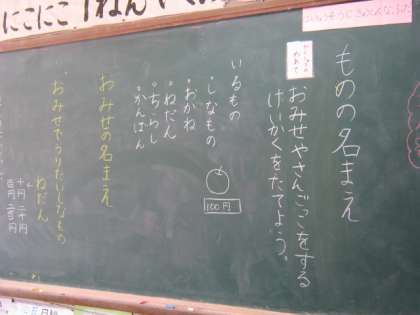 にこにこ1ねん
ものの名まえ
おみせやさんごっこをする
けいかくをたてよう。
いるもの
・しなもの
・おかね
・ねだん
・ちらし
・かんばん
100円
おみせの名まえ
おみせでうりたいしなもの
ねだん
十円 二十円
百円 二百円